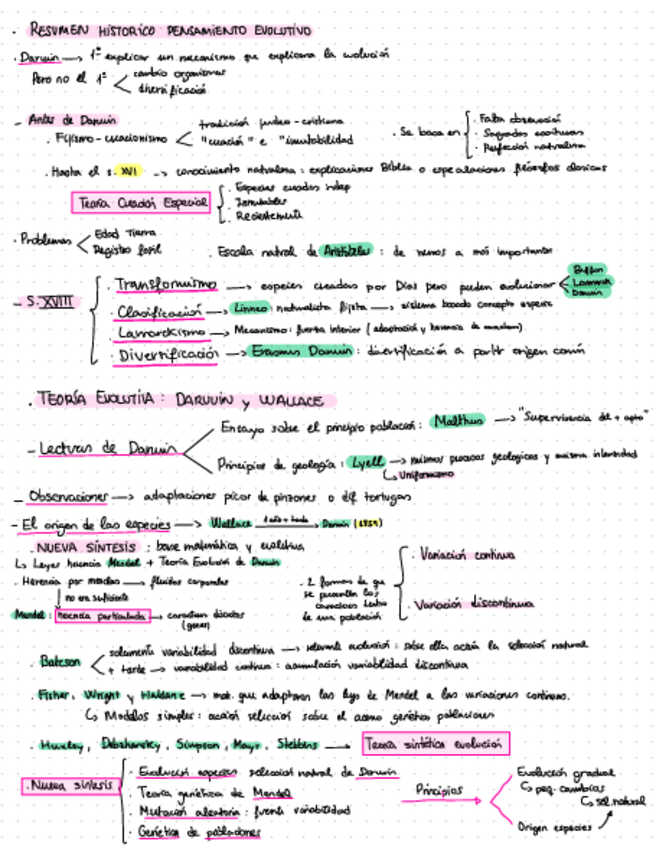 . RESUMEN HISTÓRICO PENSAMIENTO EVOLUTIVO
. Darwin → 1º explicar un mecanismo que explicara la evolución
Pero no el 1º < cambio organismos
diversificación
- Antes de Darwin
. Fijismo - creacionismo < tradición judeo - cristiana
"creación" e "inmutabilidad
. Se basa en
. Falta observación
. Sagradas escrituras
. Perfección naturaleza
. Hasta el s. XVI → conocimiento naturaleza : explicaciones Biblia o especulaciones filósofos clásicos
Teoría Creación Especial
. Especies creadas indep
. Inmutables
. Recientemente
. Problemas < Edad Tierra
Registro fósil
. Escala natural de Aristóteles : de menos a más importante
- S. XVIII
. Transformismo → especies creadas por Dios pero pueden evolucionar < Buffon
Lamarck
Darwin
. Clasificación → Linneo : naturalista fijista → sistema basado concepto especie
. Lamarckismo → Mecanismo : fuerza interior ( adaptación y herencia de
. Diversificación → Erasmus Darwin : diversificación a partir origen común
. TEORÍA EVOLUTIVA : DARWIN y WALLACE
- Lecturas de Darwin
Ensayo sobre el principio población : Malthus → "Supervivencia del + apto"
Principios de geología : Lyell → mismos procesos geológicos y misma intensidad
↳ Uniformismo
- Observaciones → adaptaciones picos de pinzones o dif tortugas
- El origen de las especies → Wallace 1 año + tarde → Darwin (1859)
. NUEVA SÍNTESIS : base matemática y evolutiva
↳ Leyes herencia Mendel + Teoría Evolución de Darwin
. Herencia por mezclas → fluidos corporales
no era suficiente
Mendel : herencia particulada → caracteres discretos
(genes)
. 2 formas de que
se presenten los
caracteres dentro
de una población
. Variación continua
. Variación discontinua
. Bateson < solamente variabilidad discontinua → relevante evolución : sobre ella actúa la selección natural
+ tarde → variabilidad continua : acumulación variabilidad discontinua
. Fisher, Wright y Haldane → mat. que adaptaron las leyes de Mendel a las variaciones continuas.
↳ Modelos simples : acción selección sobre el acervo genético poblaciones
. Huxley, Dobzhansky, Simpson, Mayr, Stebbins → Teoría sintética evolución
. Nueva síntesis
. Evolución especies selección natural de Darwin
. Teoría genética de Mendel
. Mutación aleatoria : fuente variabilidad
. Genética de poblaciones
Principios
Evolución gradual
↳ peq. cambios
↳ sel. natural
Origen especies